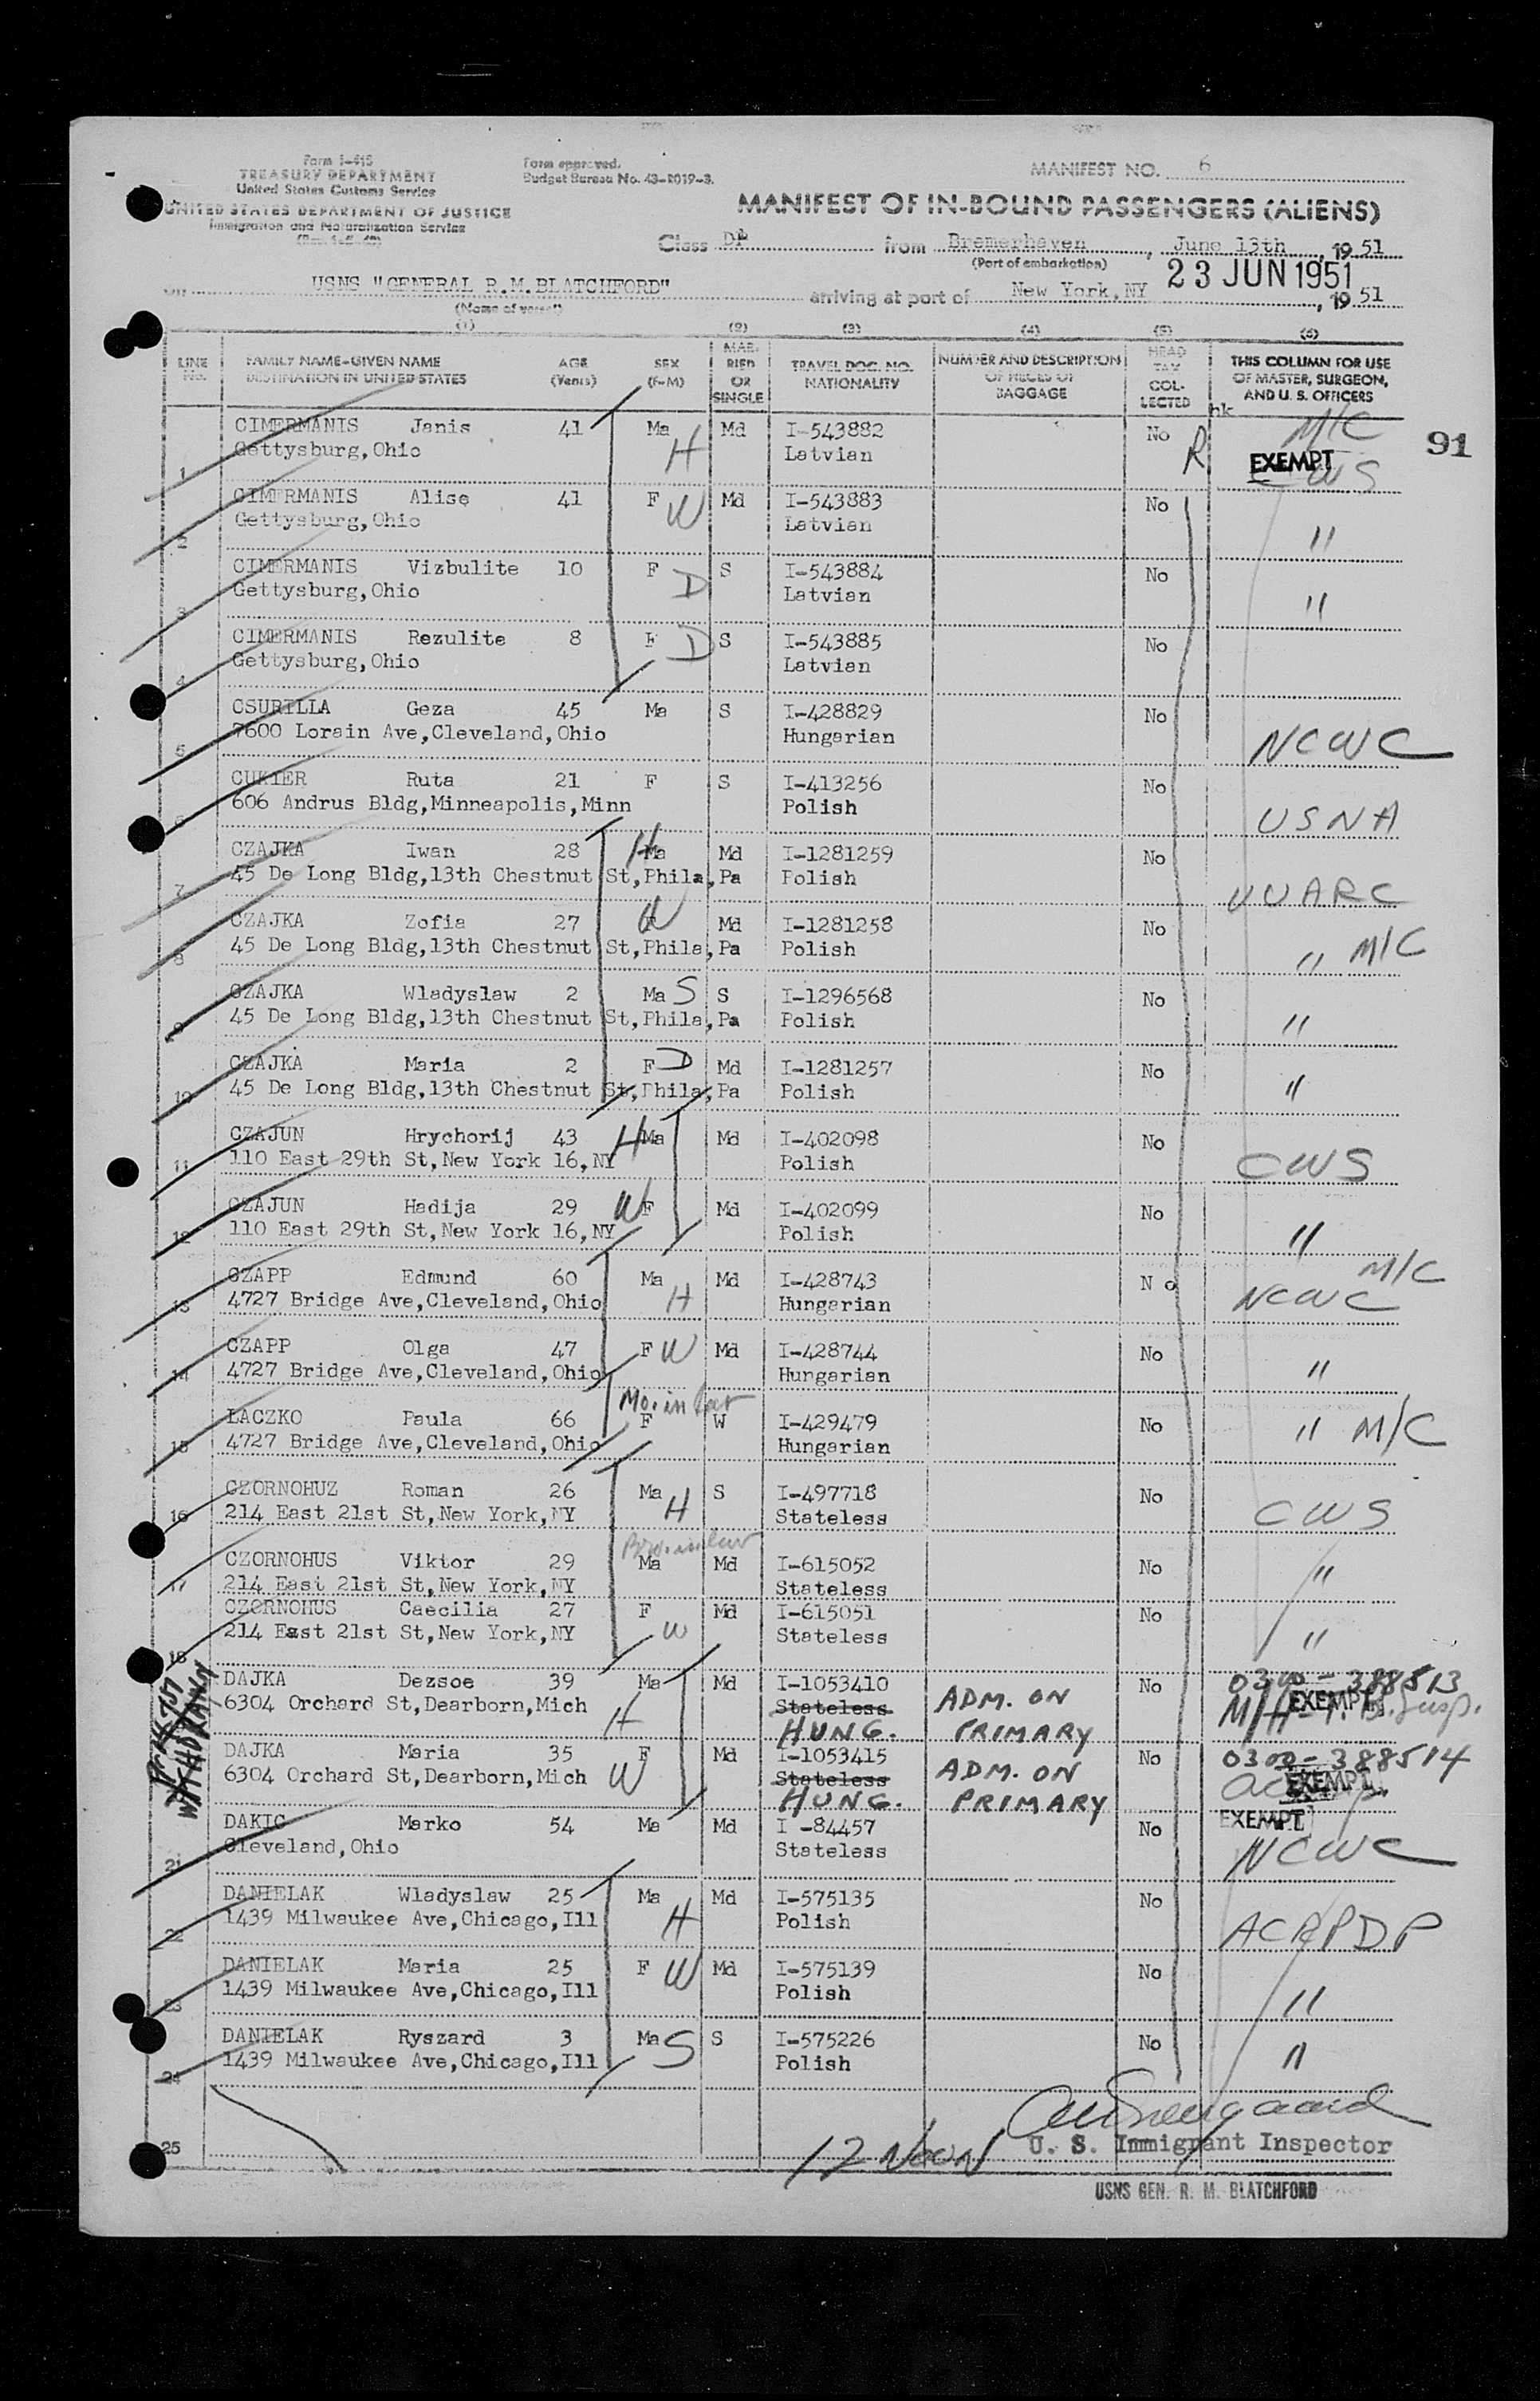 Form I-415
TREASURY DEPARTMENT
United States Customs Service
UNITED STATES DEPARTMENT OF JUSTICE
Immigration and Naturalization Service
Form approved.
Budget Bureau No. 43-R019-3.
MANIFEST NO. 6
MANIFEST OF IN-BOUND PASSENGERS (ALIENS)
Class DP from Bremerhaven, June 13th, 1951
(Port of embarkation)
23 JUN 1951
on USNS "GENERAL R.M.BLATCHFORD" arriving at port of New York, NY, 1951
(Name of vessel)
(1) (2) (3) (4) (5) (6)
LINE No. FAMILY NAME-GIVEN NAME DESTINATION IN UNITED STATES AGE (Years) SEX (F-M) MARRIED OR SINGLE TRAVEL DOC. NO. NATIONALITY NUMBER AND DESCRIPTION OF PIECES OF BAGGAGE HEAD TAX COLLECTED THIS COLUMN FOR USE OF MASTER, SURGEON, AND U. S. OFFICERS
hk
91
CIMERMANIS Janis 41 Ma Md I-543882 No M/C
1 Gettysburg, Ohio H Latvian R EXEMPT CWS
CIMERMANIS Alise 41 F W Md I-543883 No
2 Gettysburg, Ohio Latvian "
CIMERMANIS Vizbulite 10 F D S I-543884 No
3 Gettysburg, Ohio Latvian "
CIMERMANIS Rezulite 8 F D S I-543885 No
4 Gettysburg, Ohio Latvian
CSURILLA Geza 45 Ma S I-428829 No
5 7600 Lorain Ave, Cleveland, Ohio Hungarian NCWC
CUKIER Ruta 21 F S I-413256 No
6 606 Andrus Bldg, Minneapolis, Minn Polish USNA
CZAJKA Iwan 28 H Ma Md I-1281259 No
7 45 De Long Bldg, 13th Chestnut St, Phila, Pa Polish UUARC
CZAJKA Zofia 27 W Md I-1281258 No
8 45 De Long Bldg, 13th Chestnut St, Phila, Pa Polish " M/C
CZAJKA Wladyslaw 2 Ma S S I-1296568 No
9 45 De Long Bldg, 13th Chestnut St, Phila, Pa Polish "
CZAJKA Maria 2 F D Md I-1281257 No
10 45 De Long Bldg, 13th Chestnut St, Phila, Pa Polish "
CZAJUN Hrychorij 43 H Ma Md I-402098 No
11 110 East 29th St, New York 16, NY Polish CWS
CZAJUN Hadija 29 W F Md I-402099 No
12 110 East 29th St, New York 16, NY Polish "
CZAPP Edmund 60 Ma Md I-428743 No M/C
13 4727 Bridge Ave, Cleveland, Ohio H Hungarian NCWC
CZAPP Olga 47 F W Md I-428744 No
14 4727 Bridge Ave, Cleveland, Ohio Hungarian "
Mo. in law
LACZKO Paula 66 F W I-429479 No " M/C
15 4727 Bridge Ave, Cleveland, Ohio Hungarian
CZORNOHUZ Roman 26 Ma S I-497718 No
16 214 East 21st St, New York, NY H Stateless CWS
Bro. in law
CZORNOHUS Viktor 29 Ma Md I-615052 No
17 214 East 21st St, New York, NY Stateless "
CZORNOHUS Caecilia 27 F Md I-615051 No
18 214 East 21st St, New York, NY W Stateless "
DAJKA Dezsoe 39 Ma Md I-1053410 No 0300-388513
6304 Orchard St, Dearborn, Mich H Stateless ADM. ON EXEMPT
HUNG. PRIMARY
DAJKA Maria 35 F Md I-1053415 No 0300-388514
6304 Orchard St, Dearborn, Mich W Stateless ADM. ON EXEMPT
HUNG. PRIMARY
DAKIC Marko 54 Ma Md I -84457 No EXEMPT
21 Cleveland, Ohio Stateless NCWC
DANIELAK Wladyslaw 25 Ma Md I-575135 No
22 1439 Milwaukee Ave, Chicago, Ill H Polish ACRPDP
DANIELAK Maria 25 F W Md I-575139 No
23 1439 Milwaukee Ave, Chicago, Ill Polish "
DANIELAK Ryszard 3 Ma S S I-575226 No
24 1439 Milwaukee Ave, Chicago, Ill Polish "
25 12 Noon U. S. Immigrant Inspector
USNS GEN. R. M. BLATCHFORD